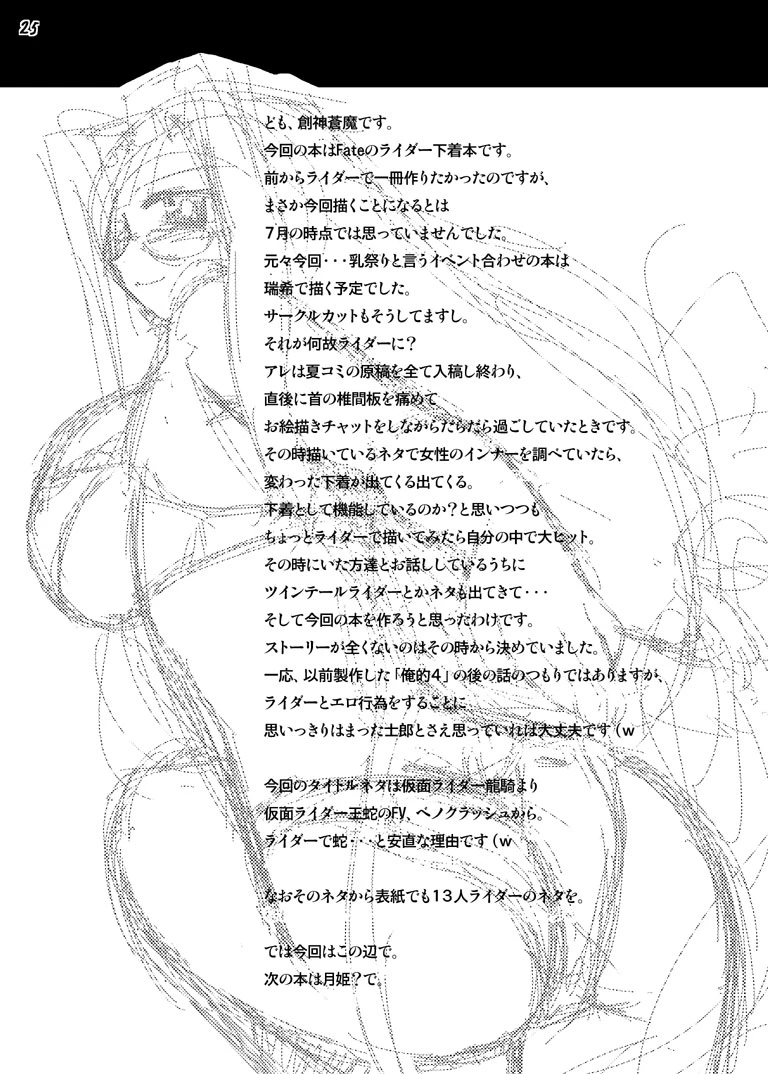 25
ども、創神蒼魔です。
今回の本はFateのライダー下着本です。
前からライダーで一冊作りたかったのですが、
まさか今回描くことになるとは
7月の時点では思っていませんでした。
元々今回・・・乳祭りと言うイベント合わせの本は
瑞希で描く予定でした。
サークルカットもそうしてますし。
それが何故ライダーに？
アレは夏コミの原稿を全て入稿し終わり、
直後に首の椎間板を痛めて
お絵描きチャットをしながらだらだら過ごしていたときです。
その時描いているネタで女性のインナーを調べていたら、
変わった下着が出てくる出てくる。
下着として機能しているのか？と思いつつも
ちょっとライダーで描いてみたら自分の中で大ヒット。
その時にいた方達とお話ししているうちに
ツインテールライダーとかネタも出てきて・・・
そして今回の本を作ろうと思ったわけです。
ストーリーが全くないのはその時から決めていました。
一応、以前製作した「俺的4」の後の話のつもりではありますが、
ライダーとエロ行為をすることに
思いっきりはまった士郎とさえ思っていれば大丈夫です（w
今回のタイトルネタは仮面ライダー龍騎より
仮面ライダー王蛇のFV、ベノクラッシュから。
ライダーで蛇・・・と安直な理由です（w
なおそのネタから表紙でも13人ライダーのネタを。
では今回はこの辺で。
次の本は月姫？で。